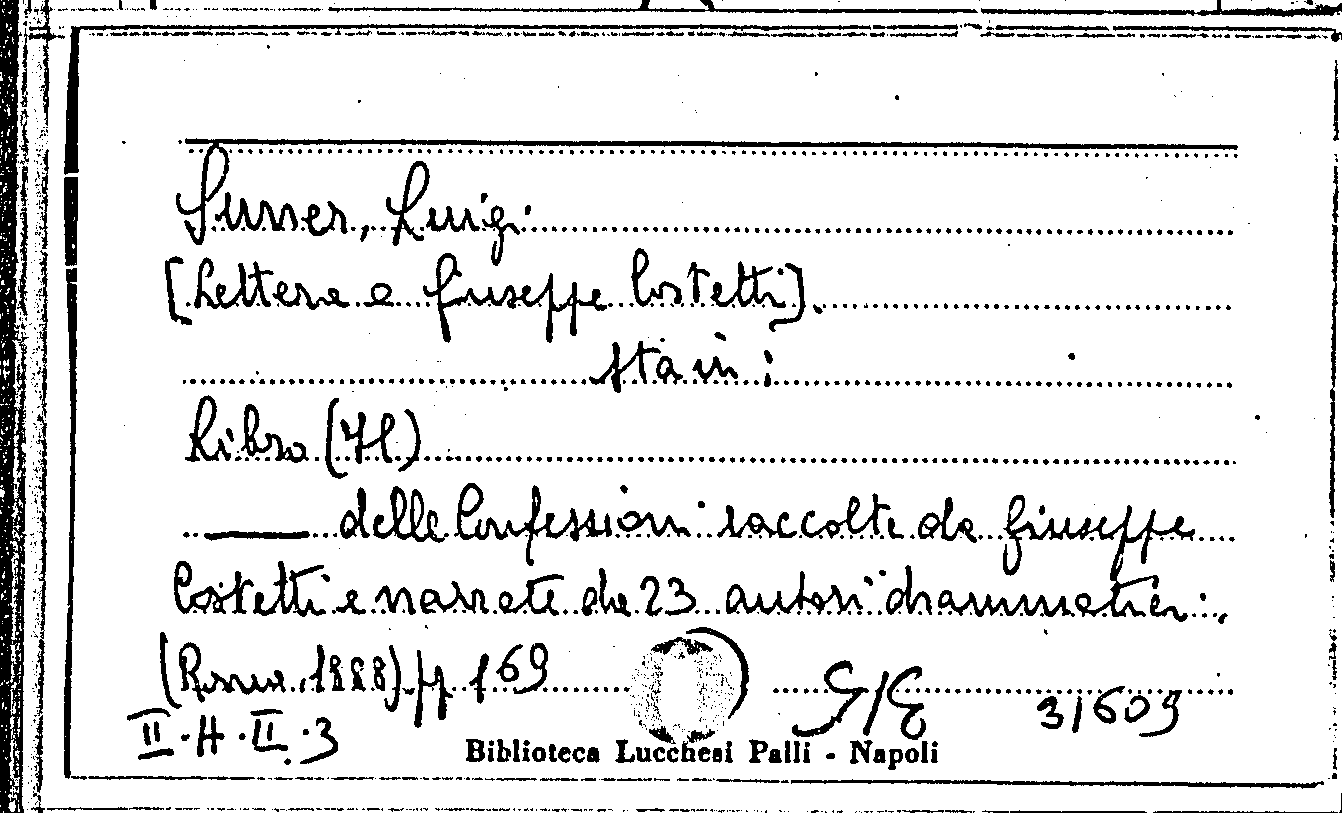 Suner, Luigi
[Lettera a Giuseppe Costetti].
sta in:
Libro (Il)
——— delle Confessioni raccolte da Giuseppe
Costetti e narrate da 23 autori drammatici.
(Roma, 1888) pp 169
G/E 31609
II.H.II.3
Biblioteca Lucchesi Palli - Napoli